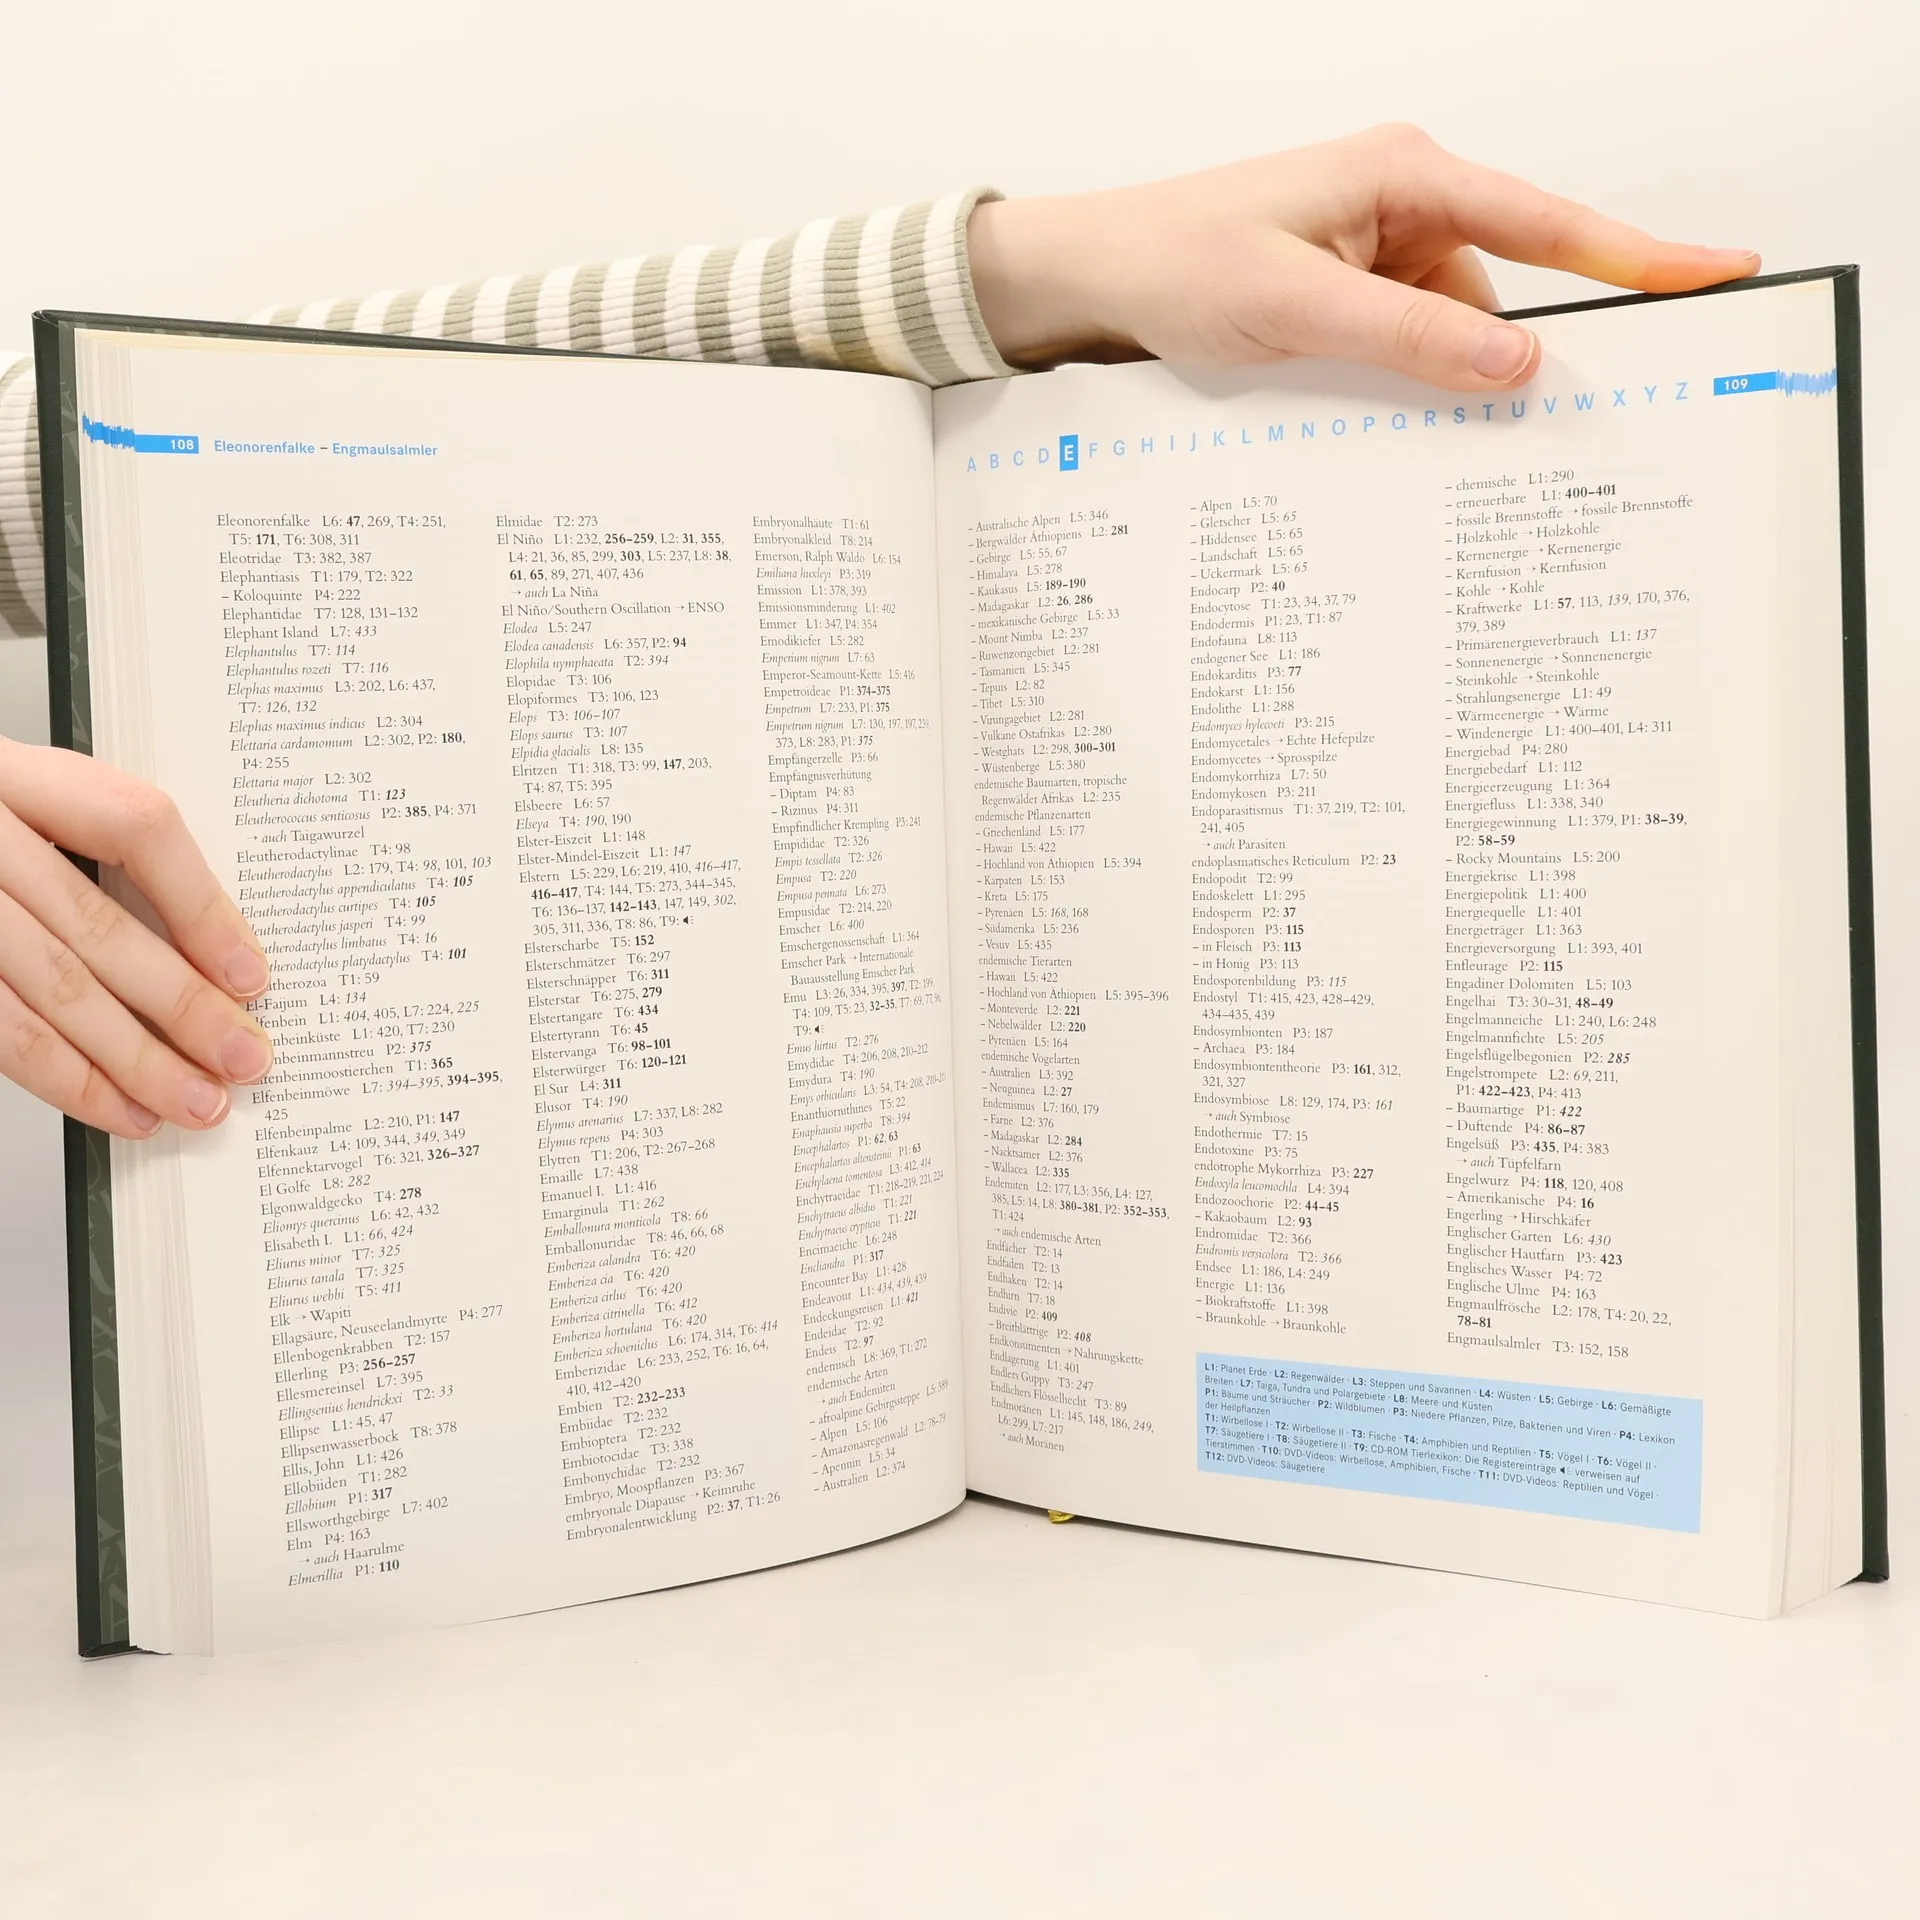 108 Eleonorenfalke – Engmaulsalmler
Eleonorenfalke L6: 47, 269, T4: 251,
T5: 171, T6: 308, 311
Eleotridae T3: 382, 387
Elephantiasis T1: 179, T2: 322
– Koloquinte P4: 222
Elephantidae T7: 128, 131–132
Elephant Island L7: 433
Elephantulus T7: 114
Elephantulus rozeti T7: 116
Elephas maximus L3: 202, L6: 437,
T7: 126, 132
Elephas maximus indicus L2: 304
Elettaria cardamomum L2: 302, P2: 180,
P4: 255
Elettaria major L2: 302
Eleutheria dichotoma T1: 123
Eleutherococcus senticosus P2: 385, P4: 371
→ auch Taigawurzel
Eleutherodactylinae T4: 98
Eleutherodactylus L2: 179, T4: 98, 101, 103
Eleutherodactylus appendiculatus T4: 105
Eleutherodactylus curtipes T4: 105
eutherodactylus jasperi T4: 99
utherodactylus limbatus T4: 16
therodactylus platydactylus T4: 101
utherozoa T1: 59
El-Faijum L4: 134
lfenbein L1: 404, 405, L7: 224, 225
nbeinküste L1: 420, T7: 230
nbeinmannstreu P2: 375
Elfenbeinmoostierchen T1: 365
Elfenbeinmöwe L7: 394–395, 394–395,
425
Elfenbeinpalme L2: 210, P1: 147
Elfenkauz L4: 109, 344, 349, 349
Elfennektarvogel T6: 321, 326–327
El Golfe L8: 282
Elgonwaldgecko T4: 278
Eliomys quercinus L6: 42, 432
Elisabeth I. L1: 66, 424
Eliurus minor T7: 325
Eliurus tanala T7: 325
Eliurus webbi T5: 411
Elk → Wapiti
Ellagsäure, Neuseelandmyrte P4: 277
Ellenbogenkrabben T2: 157
Ellerling P3: 256–257
Ellesmereinsel L7: 395
Ellingsenius hendrickxi T2: 33
Ellipse L1: 45, 47
Ellipsenwasserbock T8: 378
Ellis, John L1: 426
Ellobiiden T1: 282
Ellobium P1: 317
Ellsworthgebirge L7: 402
Elm P4: 163
→ auch Haarulme
Elmerillia P1: 110
Elmidae T2: 273
El Niño L1: 232, 256–259, L2: 31, 355,
L4: 21, 36, 85, 299, 303, L5: 237, L8: 38,
61, 65, 89, 271, 407, 436
→ auch La Niña
El Niño/Southern Oscillation → ENSO
Elodea L5: 247
Elodea canadensis L6: 357, P2: 94
Elophila nymphaeata T2: 394
Elopidae T3: 106
Elopiformes T3: 106, 123
Elops T3: 106–107
Elops saurus T3: 107
Elpidia glacialis L8: 135
Elritzen T1: 318, T3: 99, 147, 203,
T4: 87, T5: 395
Elsbeere L6: 57
Elseya T4: 190, 190
Elster-Eiszeit L1: 148
Elster-Mindel-Eiszeit L1: 147
Elstern L5: 229, L6: 219, 410, 416–417,
416–417, T4: 144, T5: 273, 344–345,
T6: 136–137, 142–143, 147, 149, 302,
305, 311, 336, T8: 86, T9:
Elsterscharbe T5: 152
Elsterschmätzer T6: 297
Elsterschnäpper T6: 311
Elsterstar T6: 275, 279
Elstertangare T6: 434
Elstertyrann T6: 45
Elstervanga T6: 98–101
Elsterwürger T6: 120–121
El Sur L4: 311
Elusor T4: 190
Elymus arenarius L7: 337, L8: 282
Elymus repens P4: 303
Elytren T1: 206, T2: 267–268
Emaille L7: 438
Emanuel I. L1: 416
Emarginula T1: 262
Emballonura monticola T8: 66
Emballonuridae T8: 46, 66, 68
Emberiza calandra T6: 420
Emberiza cia T6: 420
Emberiza cirlus T6: 420
Emberiza citrinella T6: 412
Emberiza hortulana T6: 420
Emberiza schoeniclus L6: 174, 314, T6: 414
Emberizidae L6: 233, 252, T6: 16, 64,
410, 412–420
Embien T2: 232–233
Embiidae T2: 232
Embioptera T2: 232
Embiotocidae T3: 338
Embonychidae T2: 232
Embryo, Moospflanzen P3: 367
embryonale Diapause → Keimruhe
Embryonalentwicklung P2: 37, T1: 26
Embryonalhäute T1: 61
Embryonalkleid T8: 214
Emerson, Ralph Waldo L6: 154
Emiliana huxleyi P3: 319
Emission L1: 378, 393
Emissionsminderung L1: 402
Emmer L1: 347, P4: 354
Emodikiefer L5: 282
Emperium nigrum L7: 63
Emperor-Seamount-Kette L5: 416
Empetroideae P1: 374–375
Empetrum L7: 233, P1: 375
Empetrum nigrum L7: 130, 197, 197, 239,
373, L8: 283, P1: 375
Empfängerzelle P3: 66
Empfängnisverhütung
– Diptam P4: 83
– Rizinus P4: 311
Empfindlicher Krempling P3: 241
Empididae T2: 326
Empis tessellata T2: 326
Empusa T2: 220
Empusa pennata L6: 273
Empusidae T2: 214, 220
Emscher L6: 400
Emschergenossenschaft L1: 364
Emscher Park → Internationale
Bauausstellung Emscher Park
Emu L3: 26, 334, 395, 397, T2: 199,
T4: 109, T5: 23, 32–35, T7: 69, 77, 96,
T9:
Emus hirtus T2: 276
Emydidae T4: 206, 208, 210–212
Emydura T4: 190
Emys orbicularis L3: 54, T4: 208, 210–211
Enanthiornithines T5: 22
Enaphausia superba T8: 394
Encephalartos P1: 62, 63
Encephalartos altensteinii P1: 63
Enchylaena tomentosa L3: 412, 414
Enchytraeidae T1: 218–219, 221, 224
Enchytraeus albidus T1: 221
Enchytraeus crypticus T1: 221
Encimaeiche L6: 248
Encliandra P1: 317
Encounter Bay L1: 428
Endeavour L1: 434, 439, 439
Endeckungsreisen L1: 421
Endeidae T2: 92
Endeis T2: 97
endemisch L8: 369, T1: 272
endemische Arten
→ auch Endemiten
– afroalpine Gebirgssteppe L5: 389
– Alpen L5: 106
– Amazonasregenwald L2: 78–79
– Apennin L5: 34
– Australien L2: 374
A B C D E F G H I J K L M N O P Q R S T U V W X Y Z 109
– Australische Alpen L5: 346
– Bergwälder Äthiopiens L2: 281
– Gebirge L5: 55, 67
– Himalaya L5: 278
– Kaukasus L5: 189–190
– Madagaskar L2: 26, 286
– mexikanische Gebirge L5: 33
– Mount Nimba L2: 237
– Ruwenzorigebiet L2: 281
– Tasmanien L5: 345
– Tepuis L2: 82
– Tibet L5: 310
– Virungagebiet L2: 281
– Vulkane Ostafrikas L2: 280
– Westghats L2: 298, 300–301
– Wüstenberge L5: 380
endemische Baumarten, tropische
Regenwälder Afrikas L2: 235
endemische Pflanzenarten
– Griechenland L5: 177
– Hawaii L5: 422
– Hochland von Äthiopien L5: 394
– Karpaten L5: 153
– Kreta L5: 175
– Pyrenäen L5: 168, 168
– Südamerika L5: 236
– Vesuv L5: 435
endemische Tierarten
– Hawaii L5: 422
– Hochland von Äthiopien L5: 395–396
– Monteverde L2: 221
– Nebelwälder L2: 220
– Pyrenäen L5: 164
endemische Vogelarten
– Australien L3: 392
– Neuguinea L2: 27
Endemismus L7: 160, 179
– Farne L2: 376
– Madagaskar L2: 284
– Nacktsamer L2: 376
– Wallacea L2: 335
Endemiten L2: 177, L3: 356, L4: 127,
385, L5: 14, L8: 380–381, P2: 352–353,
T1: 424
→ auch endemische Arten
Endfächer T2: 14
Endfaden T2: 13
Endhaken T2: 14
Endhirn T7: 18
Endivie P2: 409
– Breitblättrige P2: 408
Endkonsumenten → Nahrungskette
Endlagerung L1: 401
Endlers Guppy T3: 247
Endlichers Flösselhecht T3: 89
Endmoränen L1: 145, 148, 186, 249,
L6: 299, L7: 217
→ auch Moränen
– Alpen L5: 70
– Gletscher L5: 65
– Hiddensee L5: 65
– Landschaft L5: 65
– Uckermark L5: 65
Endocarp P2: 40
Endocytose T1: 23, 34, 37, 79
Endodermis P1: 23, T1: 87
Endofauna L8: 113
endogener See L1: 186
Endokarditis P3: 77
Endokarst L1: 156
Endolithe L1: 288
Endomyces hylecoeti P3: 215
Endomycetales → Echte Hefepilze
Endomycetes → Sprosspilze
Endomykorrhiza L7: 50
Endomykosen P3: 211
Endoparasitismus T1: 37, 219, T2: 101,
241, 405
→ auch Parasiten
endoplasmatisches Reticulum P2: 23
Endopodit T2: 99
Endoskelett L1: 295
Endosperm P2: 37
Endosporen P3: 115
– in Fleisch P3: 113
– in Honig P3: 113
Endosporenbildung P3: 115
Endostyl T1: 415, 423, 428–429,
434–435, 439
Endosymbionten P3: 187
– Archaea P3: 184
Endosymbiontentheorie P3: 161, 312,
321, 327
Endosymbiose L8: 129, 174, P3: 161
→ auch Symbiose
Endothermie T7: 15
Endotoxine P3: 75
endotrophe Mykorrhiza P3: 227
Endoxyla leucomochla L4: 394
Endozoochorie P2: 44–45
– Kakaobaum L2: 93
Endromidae T2: 366
Endromis versicolora T2: 366
Endsee L1: 186, L4: 249
Energie L1: 136
– Biokraftstoffe L1: 398
– Braunkohle → Braunkohle
– chemische L1: 290
– erneuerbare L1: 400–401
– fossile Brennstoffe → fossile Brennstoffe
– Holzkohle → Holzkohle
– Kernenergie → Kernenergie
– Kernfusion → Kernfusion
– Kohle → Kohle
– Kraftwerke L1: 57, 113, 139, 170, 376,
379, 389
– Primärenergieverbrauch L1: 137
– Sonnenenergie → Sonnenenergie
– Steinkohle → Steinkohle
– Strahlungsenergie L1: 49
– Wärmeenergie → Wärme
– Windenergie L1: 400–401, L4: 311
Energiebad P4: 280
Energiebedarf L1: 112
Energieerzeugung L1: 364
Energiefluss L1: 338, 340
Energiegewinnung L1: 379, P1: 38–39,
P2: 58–59
– Rocky Mountains L5: 200
Energiekrise L1: 398
Energiepolitik L1: 400
Energiequelle L1: 401
Energieträger L1: 363
Energieversorgung L1: 393, 401
Enfleurage P2: 115
Engadiner Dolomiten L5: 103
Engelhai T3: 30–31, 48–49
Engelmanneiche L1: 240, L6: 248
Engelmannfichte L5: 205
Engelsflügelbegonien P2: 285
Engelstrompete L2: 69, 211,
P1: 422–423, P4: 413
– Baumartige P1: 422
– Duftende P4: 86–87
Engelsüß P3: 435, P4: 383
→ auch Tüpfelfarn
Engelwurz P4: 118, 120, 408
– Amerikanische P4: 16
Engerling → Hirschkäfer
Englischer Garten L6: 430
Englischer Hautfarn P3: 423
Englisches Wasser P4: 72
Englische Ulme P4: 163
Engmaulfrösche L2: 178, T4: 20, 22,
78–81
Engmaulsalmler T3: 152, 158
L1: Planet Erde · L2: Regenwälder · L3: Steppen und Savannen · L4: Wüsten · L5: Gebirge · L6: Gemäßigte
Breiten · L7: Taiga, Tundra und Polargebiete · L8: Meere und Küsten
P1: Bäume und Sträucher · P2: Wildblumen · P3: Niedere Pflanzen, Pilze, Bakterien und Viren · P4: Lexikon
der Heilpflanzen
T1: Wirbellose I · T2: Wirbellose II · T3: Fische · T4: Amphibien und Reptilien · T5: Vögel I · T6: Vögel II ·
T7: Säugetiere I · T8: Säugetiere II · T9: CD-ROM Tierlexikon: Die Registereinträge verweisen auf
Tierstimmen · T10: DVD-Videos: Wirbellose, Amphibien, Fische · T11: DVD-Videos: Reptilien und Vögel ·
T12: DVD-Videos: Säugetiere